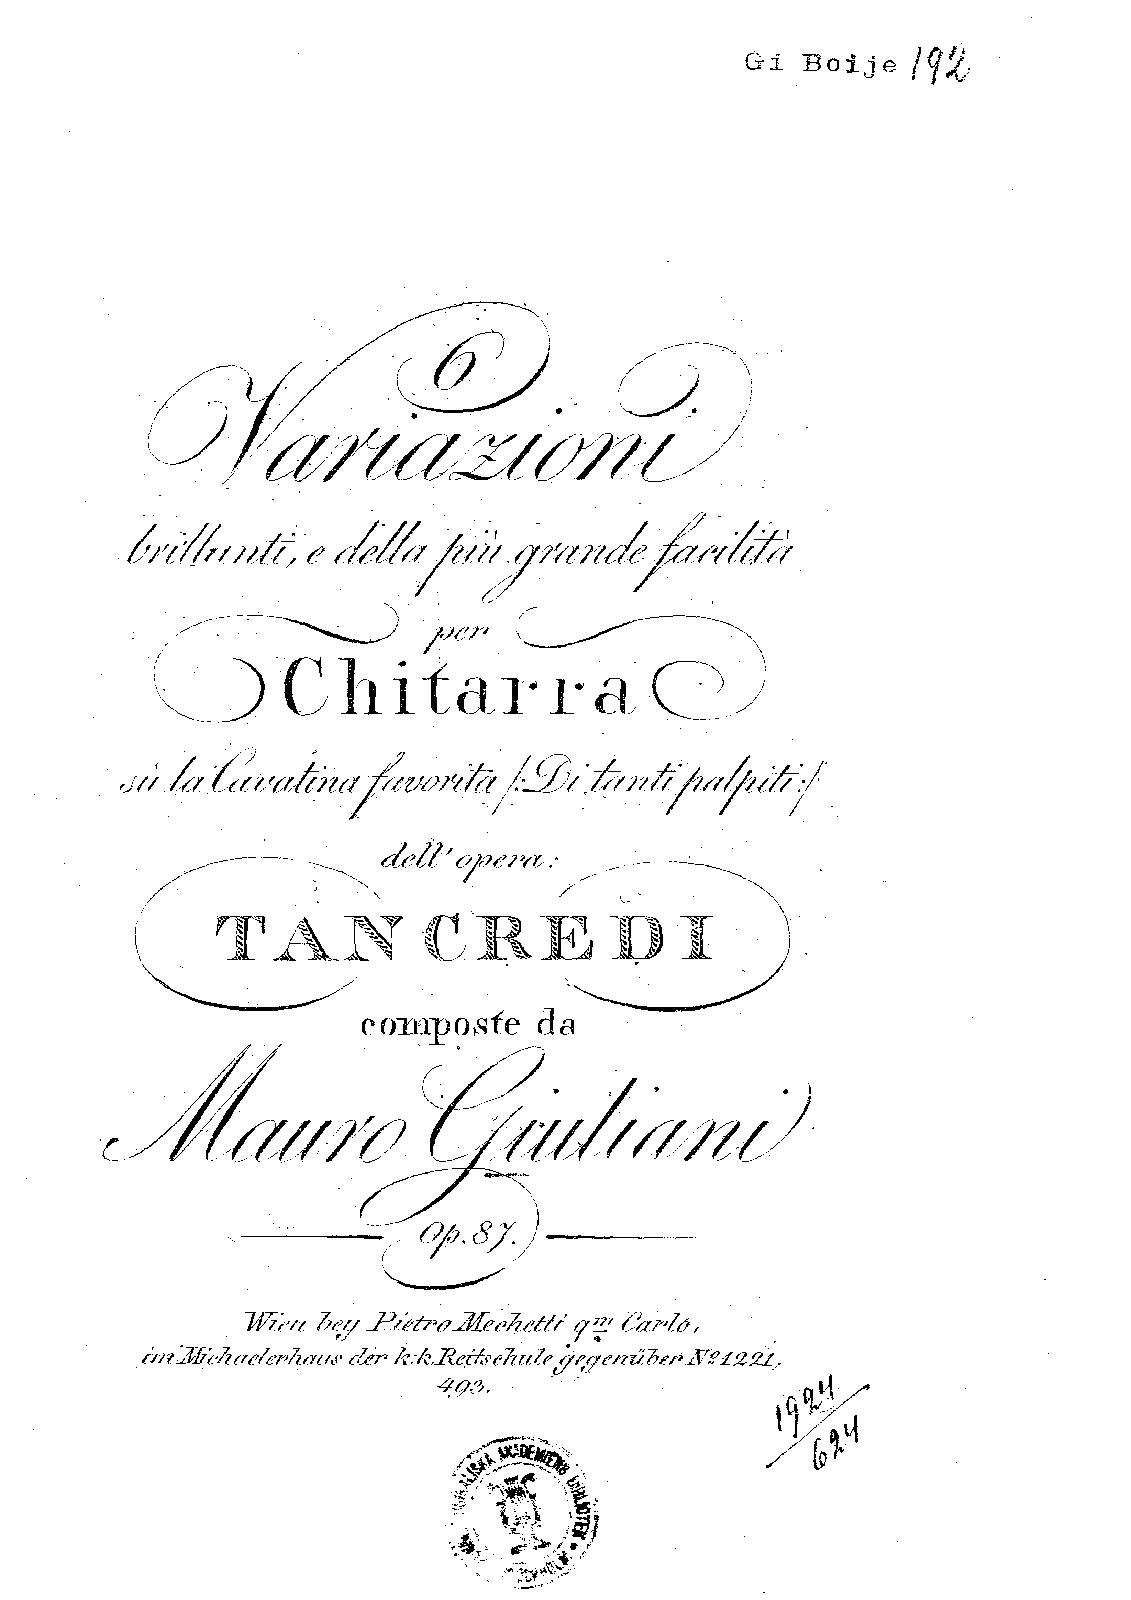 Gi Boije 192
6
Variazioni
brillanti, e della più grande facilità
per
Chitarra
sù la Cavatina favorita /:Di tanti palpiti:/
dell' opera:
TANCREDI
composte da
Mauro Giuliani
Op. 87.
Wien bey Pietro Mechetti qm Carlo,
im Michaelerhaus der k.k. Reitschule gegenüber No 1221,
493.
1924/624
AKADEMIENS BIBLIOTEK